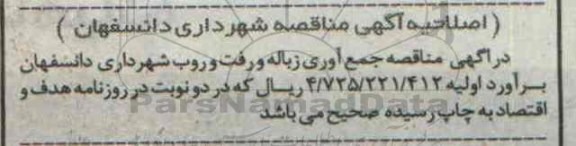 ( اصلاحیه آگهی مناقصه شهرداری دانسفهان )
در اگهی مناقصه جمع آوری زباله و رفت و روب شهرداری دانسفهان
برآورد اولیه ۴/۷۲۵/۲۲۱/۴۱۲ ریال که در دو نوبت در روزنامه هدف و
اقتصاد به چاپ رسیده صحیح می باشد
ParsNamadData